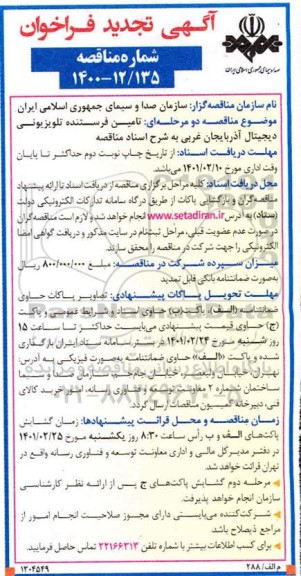 آگهی تجدید فراخوان
صدا و سیمای جمهوری اسلامی ایران
شماره مناقصه
۱۴۰۰-۱۲/۱۳۵
نام سازمان مناقصه‌گزار: سازمان صدا و سیمای جمهوری اسلامی ایران
موضوع مناقصه دو مرحله‌ای: تامین فرستنده تلویزیونی
دیجیتال آذربایجان غربی به شرح اسناد مناقصه
مهلت دریافت اسناد: از تاریخ چاپ نوبت دوم حداکثر تا پایان
وقت اداری مورخ ۱۴۰۱/۰۲/۱۰ می‌باشد.
محل دریافت اسناد: کلیه مراحل برگزاری مناقصه از دریافت اسناد تا ارائه پیشنهاد
مناقصه‌گران و بازگشایی پاکات از طریق درگاه سامانه تدارکات الکترونیکی دولت
(ستاد) به آدرس www.setadiran.ir انجام خواهد شد و لازم است مناقصه‌گران
در صورت عدم عضویت قبلی، مراحل ثبت‌نام در سایت مذکور و دریافت گواهی امضا
الکترونیکی را جهت شرکت در مناقصه را محقق سازند.
میزان سپرده شرکت در مناقصه: مبلغ ۸۰۰/۰۰۰/۰۰۰ ریال
به‌صورت ضمانتنامه بانکی قابل تمدید
مهلت تحویل پاکات پیشنهادی: تصاویر پاکات حاوی
ضمانتنامه (الف)، پاکت (ب) حاوی اسناد و شرایط عمومی و پاکت
(ج) حاوی قیمت پیشنهادی می‌بایست حداکثر تا ساعت ۱۵
روز شنبه مورخ ۱۴۰۱/۰۲/۲۴ در بستر سامانه ستاد ایران بارگذاری
شده و پاکت «الف» حاوی ضمانتنامه به‌صورت فیزیکی به آدرس
تهران، خیابان ولیعصر، خیابان جام جم، سازمان صدا و سیما
ساختمان شماره ۲ معاونت توسعه و فناوری رسانه، امور خرید کالای
فنی، دبیرخانه کمیسیون مناقصات ارسال گردد.
زمان مناقصه و محل قرائت پیشنهادها: زمان گشایش
پاکت‌های الف و ب رأس ساعت ۸:۳۰ روز یکشنبه مورخ ۱۴۰۱/۰۲/۲۵
در دفتر مدیرکل مالی و اداری معاونت توسعه و فناوری رسانه واقع در
تهران قرائت خواهد شد.
مرحله دوم گشایش پاکت‌های ج پس از ارائه نظر کارشناسی
سازمان انجام خواهد پذیرفت.
شرکت‌کننده می‌بایستی دارای مجوز صلاحیت انجام امور از
مراجع ذیصلاح باشد.
برای کسب اطلاعات بیشتر با شماره تلفن ۲۲۱۶۶۳۱۳ تماس حاصل فرمایید.
م الف/ ۲۸۸
۱۳۰۴۵۴۹